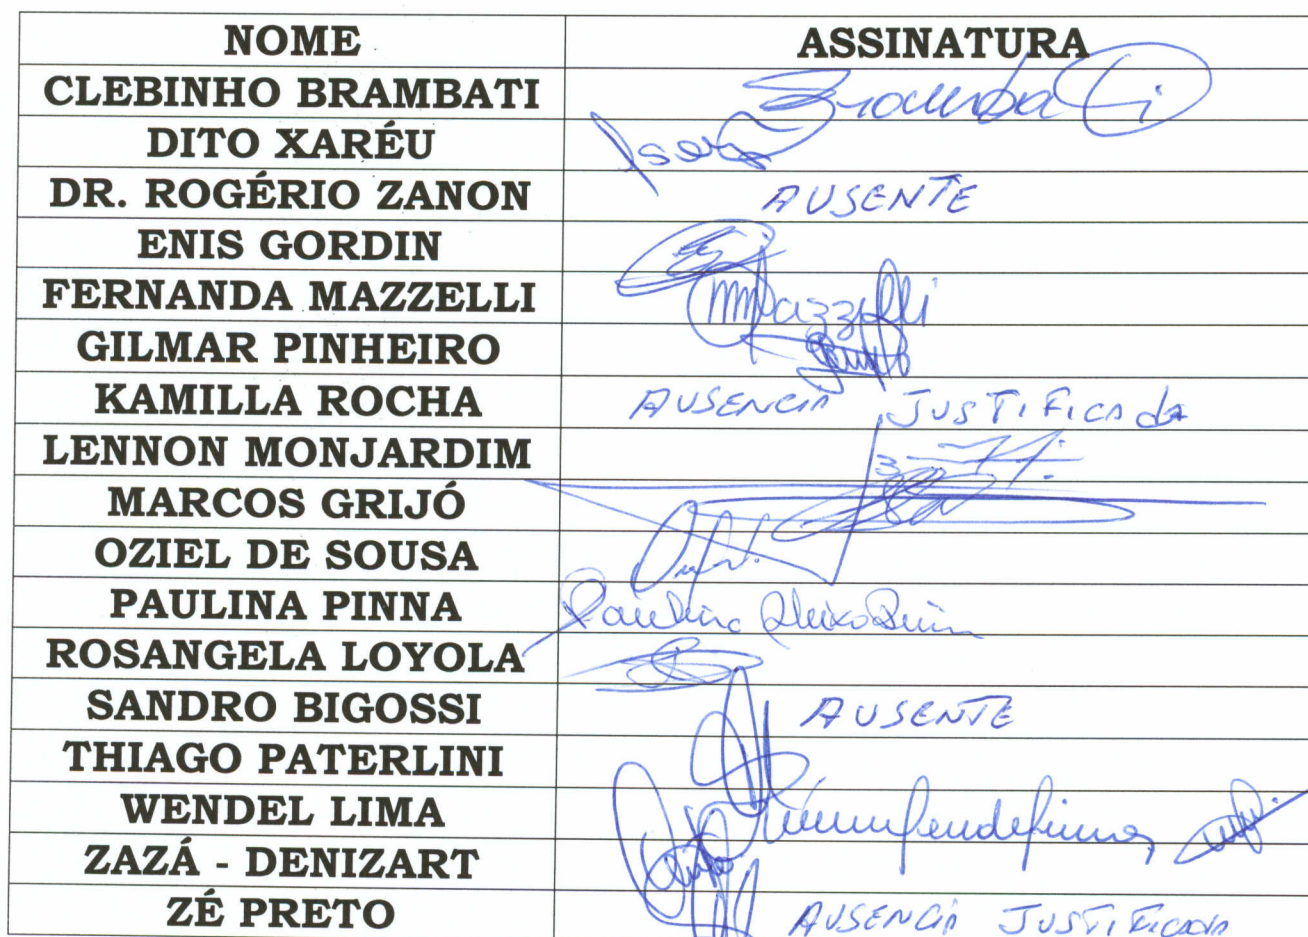 NOME ASSINATURA
CLEBINHO BRAMBATI Brambati
DITO XARÉU
DR. ROGÉRIO ZANON AUSENTE
ENIS GORDIN
FERNANDA MAZZELLI Mazzelli
GILMAR PINHEIRO
KAMILLA ROCHA AUSENCIA JUSTIFICAdA
LENNON MONJARDIM
MARCOS GRIJÓ
OZIEL DE SOUSA
PAULINA PINNA Paulina Aleixo Pinna
ROSANGELA LOYOLA
SANDRO BIGOSSI AUSENTE
THIAGO PATERLINI
WENDEL LIMA
ZAZÁ - DENIZART
ZÉ PRETO AUSENCIA JUSTIFICADA